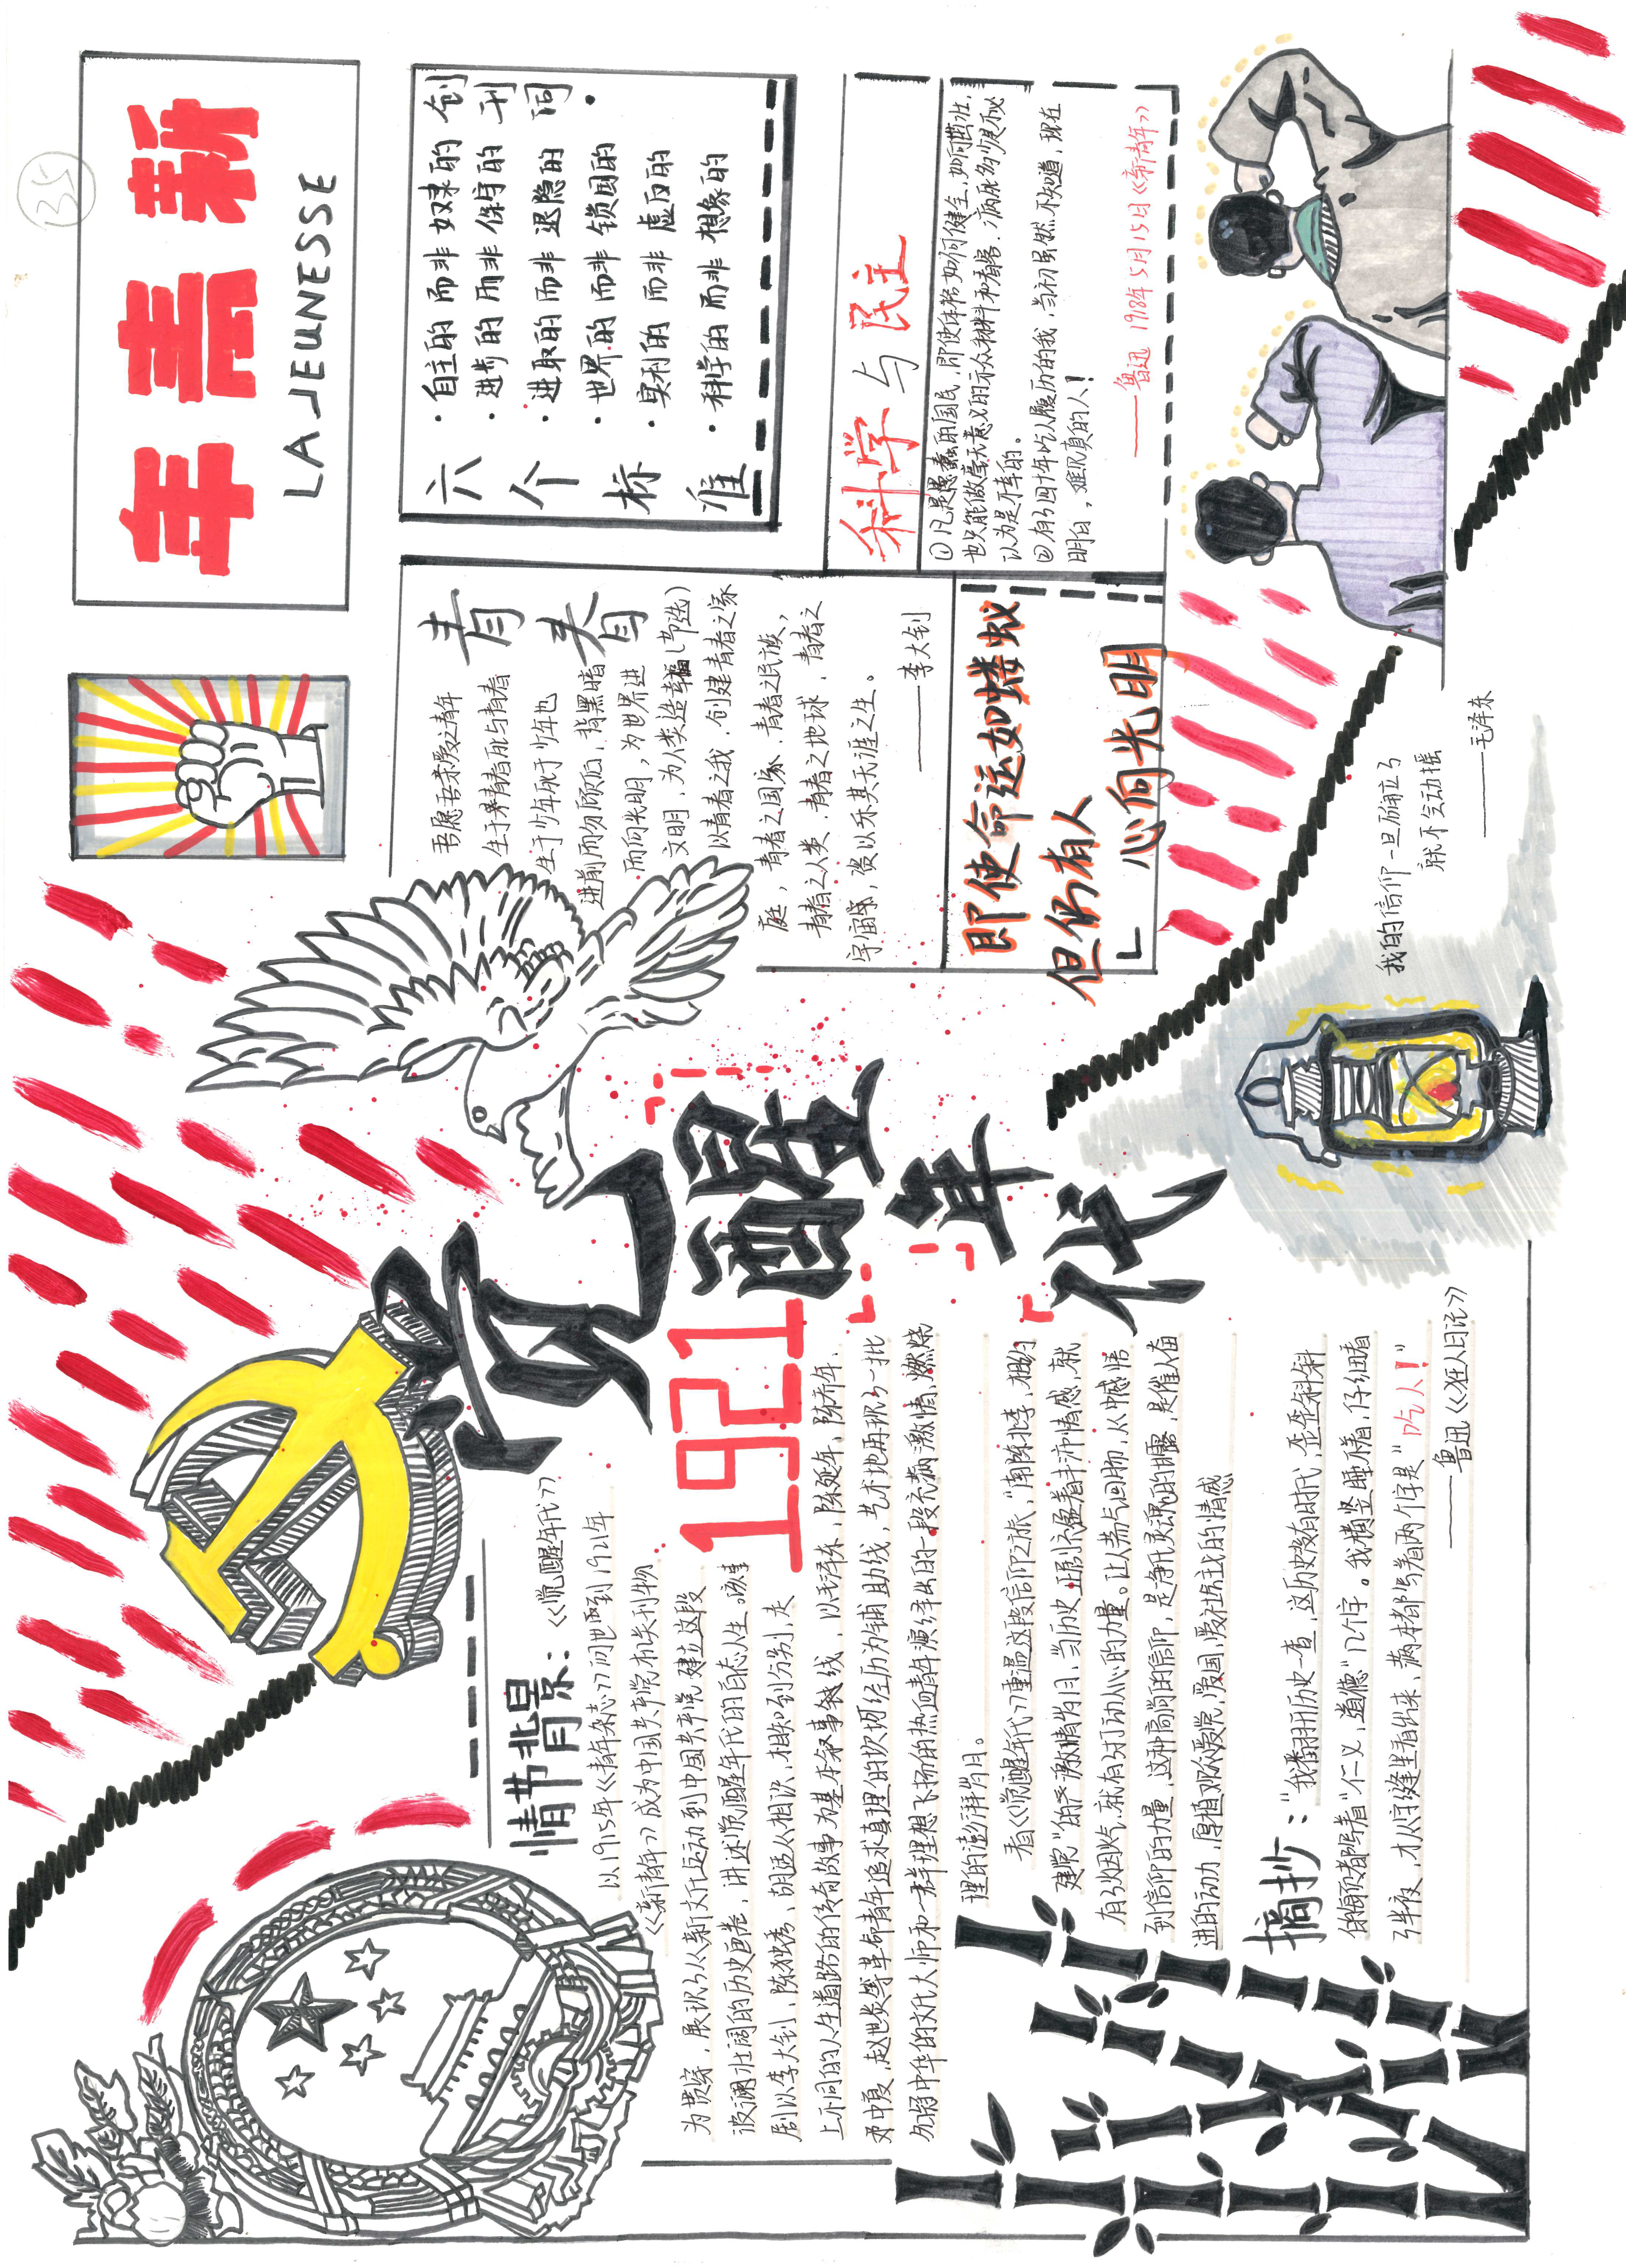 觉醒年代
1921
情节背景:《觉醒年代》
以1915年《青年杂志》问世到1921年
《新青年》成为中国共产党机关刊物
为贯穿,展现了从新文化运动到中国共产党建立这段
波澜壮阔的历史画卷,讲述觉醒年代的百态人生。该
剧以李大钊、陈独秀、胡适从相识,相知到分别,走
上不同的人生道路的传奇故事为基本叙事线,以毛泽东、陈延年、陈乔年、
邓中夏,赵世炎等革命青年追求真理的坎坷经历为辅助线,艺术地再现了一批
名将中华的文化大师和一群理想飞扬的热血青年演绎出的一段充满激情,燃烧
理的澎湃岁月。
看《觉醒年代》重温这段信仰之旅,"南陈北李,相约
建党"的严激情岁月,当历史正剧充盈着丰沛情感,就
有了烟火气,就有了打动人心的力量。让人荡气回肠,从中感悟
到信仰的力量,这种高尚的信仰,是净化灵魂的甘露,是催人奋
进的动力,厚植观众爱党,爱国,爱社会主义的情感
摘抄:"我翻开历史一查,这历史没有时代,歪歪斜斜
的每页都写着"仁义,道德"几个字。我横竖睡不着,仔细看
了半夜,才从字缝里看出来,满本都写着两个字是"吃人!"
——鲁迅《狂人日记》
135
年青新
LA JEUNESSE
六个标准
·自主的而非奴隶的
·进步的而非保守的
·进取的而非退隐的
·世界的而非锁国的
·实利的而非虚文的
·科学的而非想象的
创刊词·
青春
吾愿吾亲爱之青年
生于青春死于青春
生于少年死于少年也
进前而勿顾后,背黑暗
而向光明,为世界进
文明,为人类造幸福(节选)
以青春之我,创建青春之家
庭,青春之国家,青春之民族,
青春之人类,青春之地球,青春之
宇宙,资以乐其无涯之生。
——李大钊
科学与民主
①凡是愚蠢的国民,即使体格如何健全,如何茁壮,
也只能做毫无意义的示众材料和看客,病死多少是不必
以为是不幸的。
②有了四千年吃人履历的我,当初虽然不知道,现在
明白,难见真的人!
——鲁迅 1918年5月15日《新青年》
即使命运如蝼蚁
但仍有人
心向光明
我的信仰一旦确立了
就不会动摇
——毛泽东